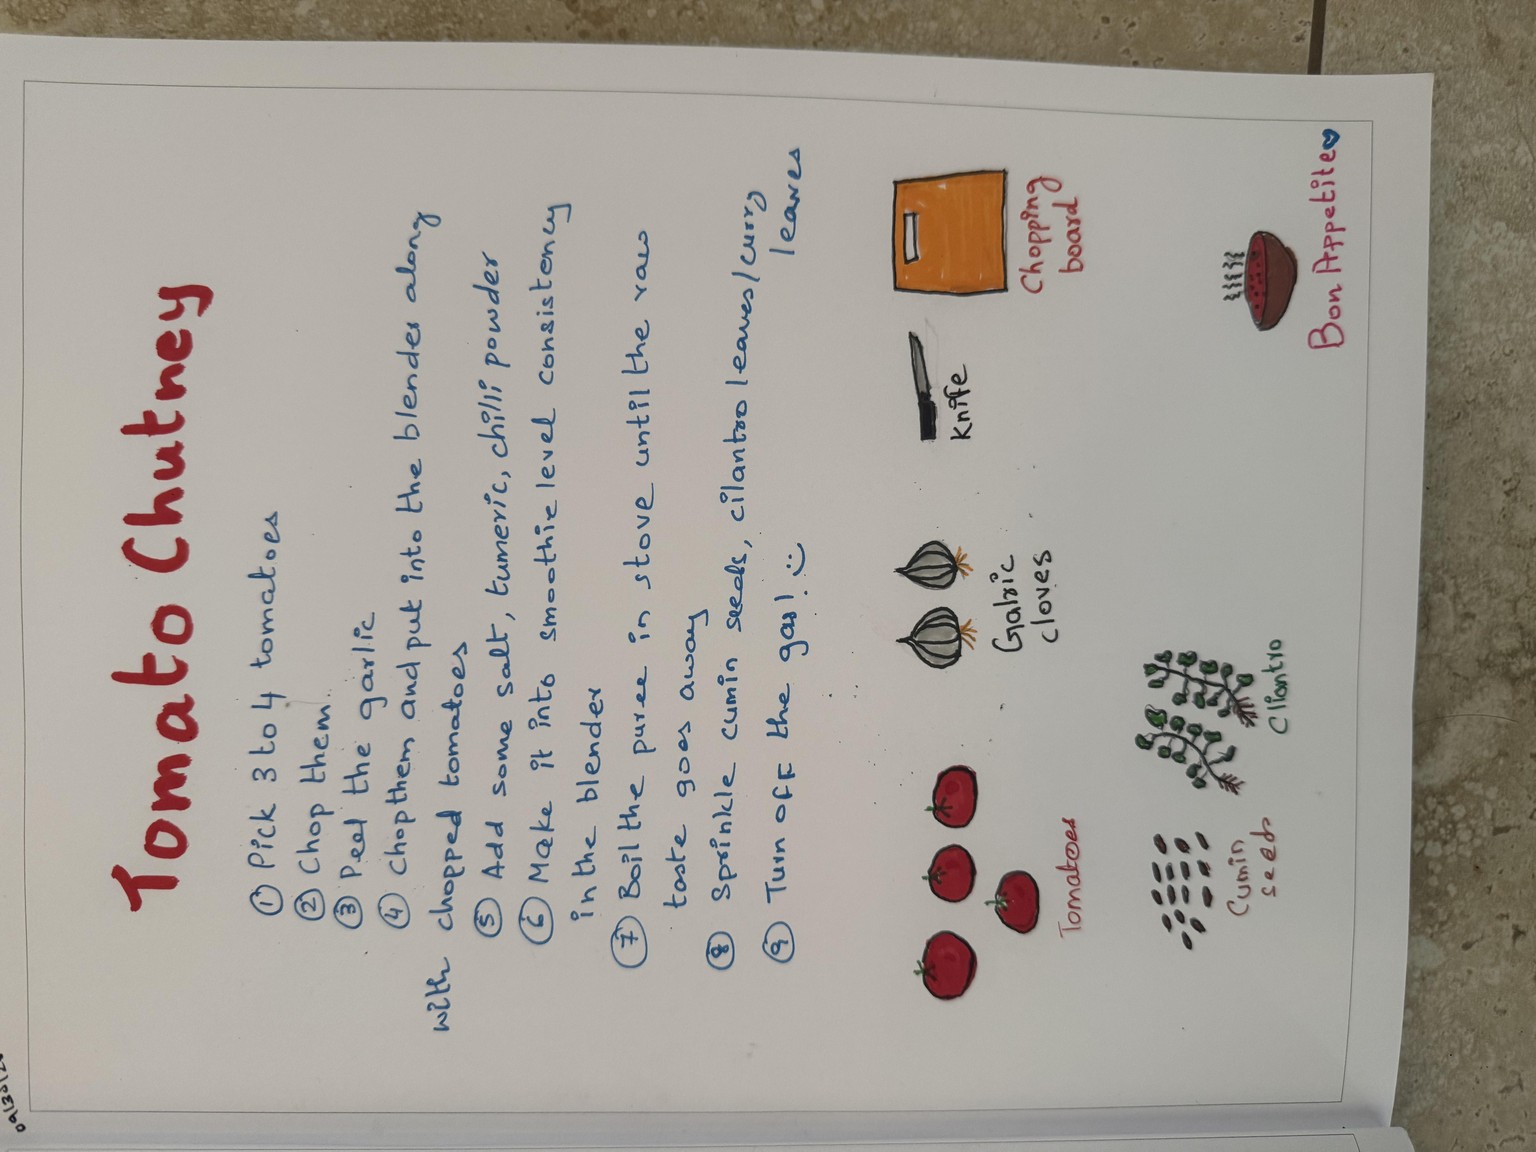 Tomato Chutney
① Pick 3 to 4 tomatoes
② Chop them
③ Peel the garlic
④ Chop them and put into the blender along
with chopped tomatoes
⑤ Add some salt, tumeric, chilli powder
⑥ Make it into smoothie level consistency
in the blender
⑦ Boil the puree in stove until the raw
taste goes away
⑧ Sprinkle cumin seeds, cilantro leaves/curry
leaves
⑨ Turn off the gas! :)
Tomatoes
Galric
cloves
Knife
Chopping
board
Cumin
seeds
Cliantro
Bon Appetite